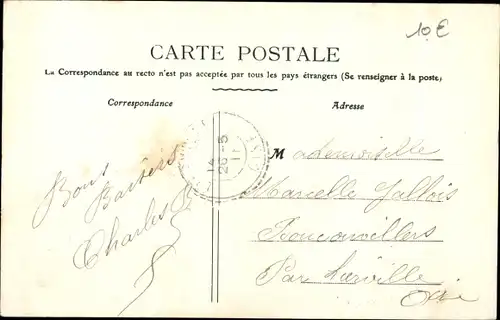 10 €
CARTE POSTALE
La Correspondance au recto n'est pas acceptée par tous les pays étrangers (Se renseigner à la poste)
Correspondance
Adresse
Bons
Baisers
Charles
Mademoiselle
Marcelle Gallois
Par
Oise
26-5
11